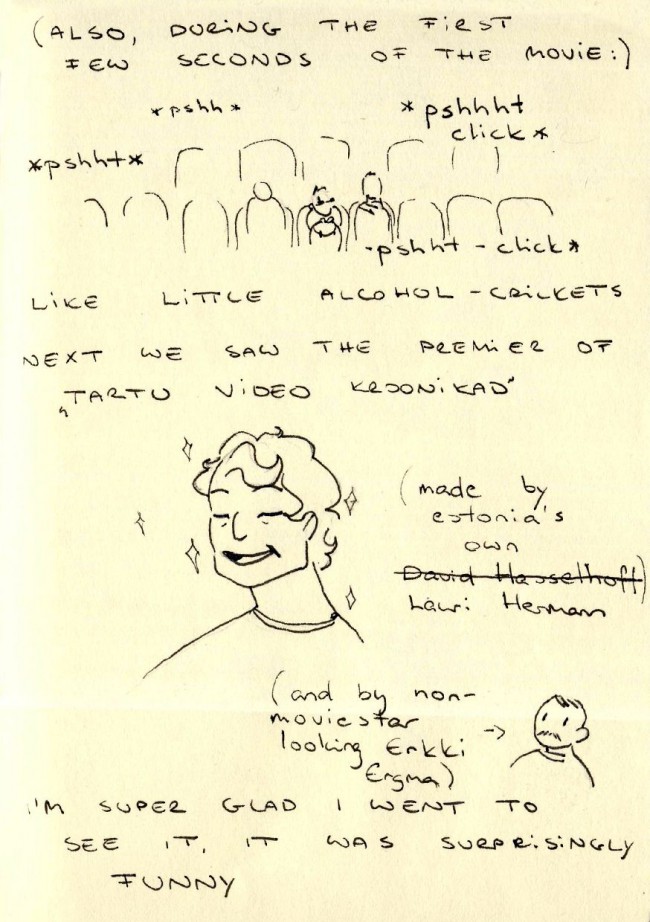 (ALSO, DURING THE FIRST
FEW SECONDS OF THE MOVIE:)
*pshh*
*pshhht
click*
*pshht*
-pshht - click*
LIKE LITTLE ALCOHOL-CRICKETS
NEXT WE SAW THE PREMIER OF
„TARTU VIDEO KROONIKAD"
(made by
estonia's
own
David Hasselhoff)
Lauri Herman
(and by non-
moviestar
looking Erkki →
Ergma)
I'M SUPER GLAD I WENT TO
SEE IT, IT WAS SURPRISINGLY
FUNNY